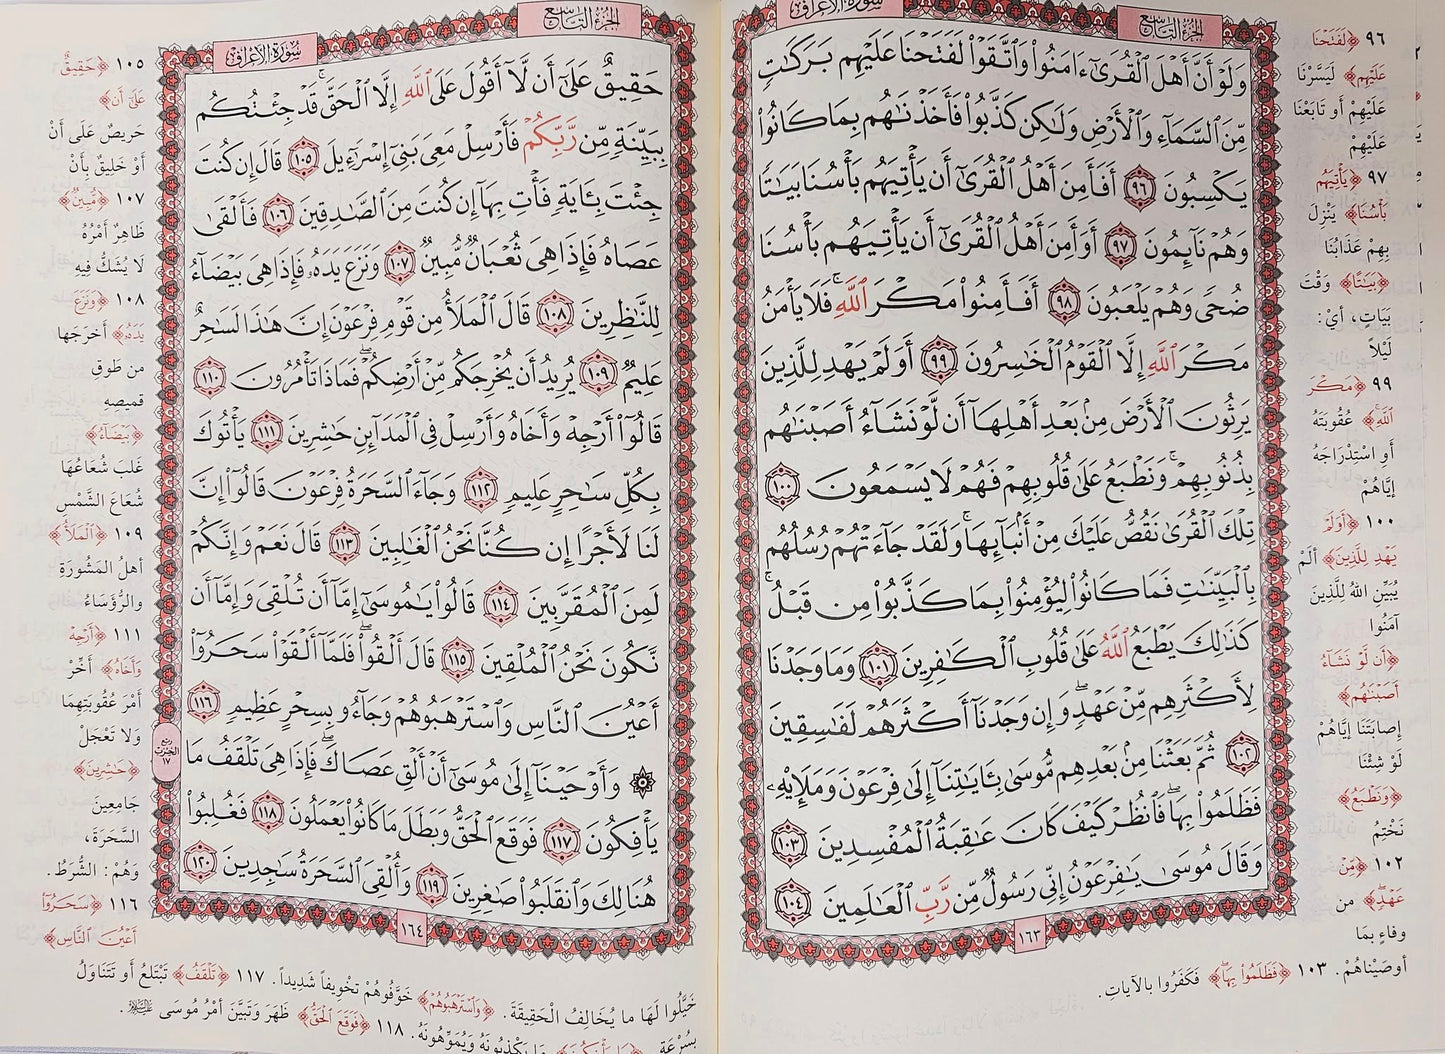 الجزء التاسع
سورة الأعراف
وَلَوْ أَنَّ أَهْلَ ٱلْقُرَىٰٓ ءَامَنُوا۟ وَٱتَّقَوْا۟ لَفَتَحْنَا عَلَيْهِم بَرَكَٰتٍ
مِّنَ ٱلسَّمَآءِ وَٱلْأَرْضِ وَلَٰكِن كَذَّبُوا۟ فَأَخَذْنَٰهُم بِمَا كَانُوا۟
يَكْسِبُونَ ٩٦ أَفَأَمِنَ أَهْلُ ٱلْقُرَىٰٓ أَن يَأْتِيَهُم بَأْسُنَا بَيَٰتًا
وَهُمْ نَآئِمُونَ ٩٧ أَوَأَمِنَ أَهْلُ ٱلْقُرَىٰٓ أَن يَأْتِيَهُم بَأْسُنَا
ضُحًى وَهُمْ يَلْعَبُونَ ٩٨ أَفَأَمِنُوا۟ مَكْرَ ٱللَّهِ ۚ فَلَا يَأْمَنُ
مَكْرَ ٱللَّهِ إِلَّا ٱلْقَوْمُ ٱلْخَٰسِرُونَ ٩٩ أَوَلَمْ يَهْدِ لِلَّذِينَ
يَرِثُونَ ٱلْأَرْضَ مِنۢ بَعْدِ أَهْلِهَآ أَن لَّوْ نَشَآءُ أَصَبْنَٰهُم
بِذُنُوبِهِمْ ۚ وَنَطْبَعُ عَلَىٰ قُلُوبِهِمْ فَهُمْ لَا يَسْمَعُونَ ١٠٠
تِلْكَ ٱلْقُرَىٰ نَقُصُّ عَلَيْكَ مِنْ أَنۢبَآئِهَا ۚ وَلَقَدْ جَآءَتْهُمْ رُسُلُهُم
بِٱلْبَيِّنَٰتِ فَمَا كَانُوا۟ لِيُؤْمِنُوا۟ بِمَا كَذَّبُوا۟ مِن قَبْلُ ۚ
كَذَٰلِكَ يَطْبَعُ ٱللَّهُ عَلَىٰ قُلُوبِ ٱلْكَٰفِرِينَ ١٠١ وَمَا وَجَدْنَا
لِأَكْثَرِهِم مِّنْ عَهْدٍ ۖ وَإِن وَجَدْنَآ أَكْثَرَهُمْ لَفَٰسِقِينَ
١٠٢ ثُمَّ بَعَثْنَا مِنۢ بَعْدِهِم مُّوسَىٰ بِـَٔايَٰتِنَآ إِلَىٰ فِرْعَوْنَ وَمَلَإِي۟هِۦ
فَظَلَمُوا۟ بِهَا ۖ فَٱنظُرْ كَيْفَ كَانَ عَٰقِبَةُ ٱلْمُفْسِدِينَ ١٠٣
وَقَالَ مُوسَىٰ يَٰفِرْعَوْنُ إِنِّى رَسُولٌ مِّن رَّبِّ ٱلْعَٰلَمِينَ ١٠٤
١٦٣
٩٦ ﴿لَفَتَحْنَا
عَلَيْهِم﴾ لَيَسَّرْنَا
عَلَيْهِمْ أو تَابَعْنَا
عَلَيْهِمْ
٩٧ ﴿يَأْتِيَهُم
بَأْسُنَا﴾ يَنْزِلَ
بِهِمْ عَذَابُنَا
﴿بَيَٰتًا﴾ وَقْتَ
بَيَاتٍ، أيْ:
لَيْلاً
٩٩ ﴿مَكْرَ
ٱللَّهِ﴾ عُقُوبَتَهُ
أوِ اسْتِدْرَاجَهُ
إيَّاهُمْ
١٠٠ ﴿أَوَلَمْ
يَهْدِ لِلَّذِينَ﴾ ألَمْ
يُبَيِّنِ اللهُ لِلَّذِينَ
آمَنُوا
﴿أَن لَّوْ نَشَآءُ
أَصَبْنَٰهُم﴾
إصابَتَنَا إيَّاهُمْ
لَوْ شِئْنَا
﴿وَنَطْبَعُ﴾
نَخْتِمُ
١٠٢ ﴿مِّنْ
عَهْدٍ﴾ من
وفاءٍ بمَا
أوصَيْناهُمْ. ١٠٣ ﴿فَظَلَمُوا۟ بِهَا﴾ فَكَفَرُوا بالآياتِ.
الجزء التاسع
سورة الأعراف
حَقِيقٌ عَلَىٰٓ أَن لَّآ أَقُولَ عَلَى ٱللَّهِ إِلَّا ٱلْحَقَّ ۚ قَدْ جِئْتُكُم
بِبَيِّنَةٍ مِّن رَّبِّكُمْ فَأَرْسِلْ مَعِىَ بَنِىٓ إِسْرَٰٓءِيلَ ١٠٥ قَالَ إِن كُنتَ
جِئْتَ بِـَٔايَةٍ فَأْتِ بِهَآ إِن كُنتَ مِنَ ٱلصَّٰدِقِينَ ١٠٦ فَأَلْقَىٰ
عَصَاهُ فَإِذَا هِىَ ثُعْبَانٌ مُّبِينٌ ١٠٧ وَنَزَعَ يَدَهُۥ فَإِذَا هِىَ بَيْضَآءُ
لِلنَّٰظِرِينَ ١٠٨ قَالَ ٱلْمَلَأُ مِن قَوْمِ فِرْعَوْنَ إِنَّ هَٰذَا لَسَٰحِرٌ
عَلِيمٌ ١٠٩ يُرِيدُ أَن يُخْرِجَكُم مِّنْ أَرْضِكُمْ ۖ فَمَاذَا تَأْمُرُونَ ١١٠
قَالُوٓا۟ أَرْجِهْ وَأَخَاهُ وَأَرْسِلْ فِى ٱلْمَدَآئِنِ حَٰشِرِينَ ١١١ يَأْتُوكَ
بِكُلِّ سَٰحِرٍ عَلِيمٍ ١١٢ وَجَآءَ ٱلسَّحَرَةُ فِرْعَوْنَ قَالُوٓا۟ إِنَّ
لَنَا لَأَجْرًا إِن كُنَّا نَحْنُ ٱلْغَٰلِبِينَ ١١٣ قَالَ نَعَمْ وَإِنَّكُمْ
لَمِنَ ٱلْمُقَرَّبِينَ ١١٤ قَالُوا۟ يَٰمُوسَىٰٓ إِمَّآ أَن تُلْقِىَ وَإِمَّآ أَن
نَّكُونَ نَحْنُ ٱلْمُلْقِينَ ١١٥ قَالَ أَلْقُوا۟ ۖ فَلَمَّآ أَلْقَوْا۟ سَحَرُوٓا۟
أَعْيُنَ ٱلنَّاسِ وَٱسْتَرْهَبُوهُمْ وَجَآءُو بِسِحْرٍ عَظِيمٍ ١١٦
۞ وَأَوْحَيْنَآ إِلَىٰ مُوسَىٰٓ أَنْ أَلْقِ عَصَاكَ ۖ فَإِذَا هِىَ تَلْقَفُ مَا
يَأْفِكُونَ ١١٧ فَوَقَعَ ٱلْحَقُّ وَبَطَلَ مَا كَانُوا۟ يَعْمَلُونَ ١١٨ فَغُلِبُوا۟
هُنَالِكَ وَٱنقَلَبُوا۟ صَٰغِرِينَ ١١٩ وَأُلْقِىَ ٱلسَّحَرَةُ سَٰجِدِينَ ١٢٠
١٦٤
١٠٥ ﴿حَقِيقٌ
عَلَىٰٓ أَن﴾
حَرِيصٌ عَلَى أنْ
أوْ خَلِيقٌ بِأنْ
١٠٧ ﴿مُّبِينٌ﴾
ظَاهِرٌ أمْرُهُ
لَا يُشَكُّ فِيهِ
١٠٨ ﴿وَنَزَعَ
يَدَهُۥ﴾ أخرَجَها
من طوقِ
قميصِهِ
﴿بَيْضَآءُ﴾
غَلَبَ شُعَاعُهَا
شُعَاعَ الشَّمْسِ
١٠٩ ﴿ٱلْمَلَأُ﴾
أهلُ المَشُورَةِ
والرُّؤَسَاءُ
١١١ ﴿أَرْجِهْ
وَأَخَاهُ﴾ أخِّرْ
أمْرَ عُقُوبَتِهِما
وَلا تَعْجَلْ
﴿حَٰشِرِينَ﴾
جَامِعِينَ
السَّحَرَةَ،
وَهُمْ: الشُّرَطُ.
١١٦ ﴿سَحَرُوٓا۟
أَعْيُنَ ٱلنَّاسِ﴾
ربع
الحزب
١٧
خَيَّلُوا لَهَا ما يُخَالِفُ الْحَقِيقَةَ. ﴿وَٱسْتَرْهَبُوهُمْ﴾ خَوَّفُوهُمْ تخْوِيفاً شَدِيداً. ١١٧ ﴿تَلْقَفُ﴾ تَبْتَلِعُ أو تَتَنَاوَلُ
بِسُرْعَةٍ ﴿مَا يَأْفِكُونَ﴾ ما يَكْذِبُونَهُ وَيُمَوِّهُونَهُ. ١١٨ ﴿فَوَقَعَ ٱلْحَقُّ﴾ ظَهَرَ وَتَبيَّنَ أمْرُ مُوسَى عليه السلام.